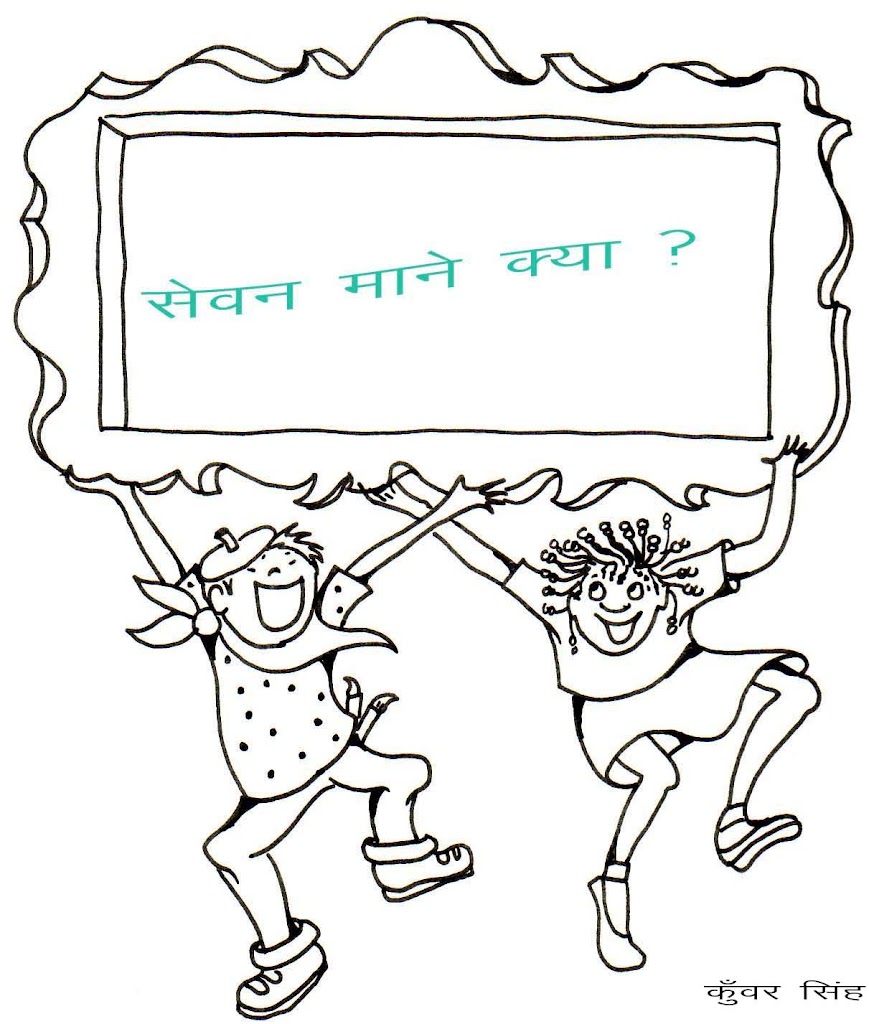 सेवन माने क्या ?
कुँवर सिंह